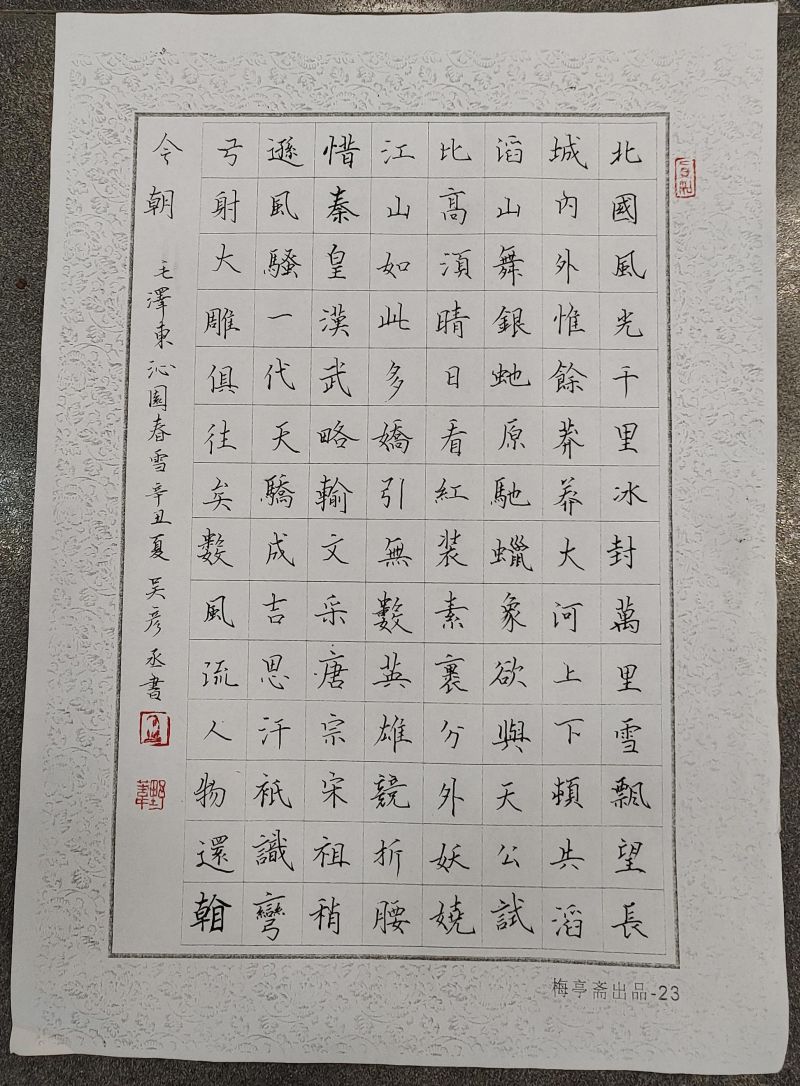 北國風光千里冰封萬里雪飄望長
城內外惟餘莽莽大河上下頓共滔
滔山舞銀虵原馳蠟象欲與天公試
比高須晴日看紅裝素裹分外妖嬈
江山如此多嬌引無數英雄競折腰
惜秦皇漢武略輸文采唐宗宋祖稍
遜風騷一代天驕成吉思汗祇識彎
弓射大雕俱往矣數風流人物還看
今朝 毛澤東沁園春雪辛丑夏 吳彥丞書
梅亭斋出品-23